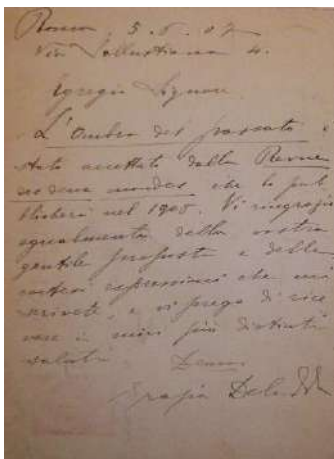 Roma, 5. 6. 07
Via Sallustiana 4.
Egregio Signore
L'Ombra del passato è
stato accettato dalla Revue
des deux mondes che lo pub
blicherà nel 1908. Vi ringrazio
egualmente della vostra
gentile proposta e delle
cortesi espressioni che mi
scrivete, e vi prego di rice
vere i miei più distinti
saluti
Grazia Deledda